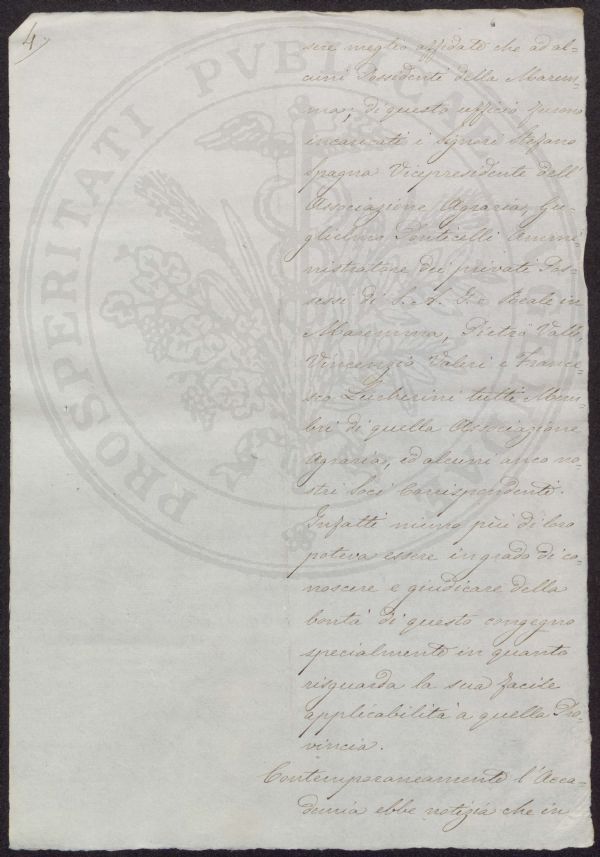 4
sere meglio affidato che ad al-
cuni Possidenti della Marem-
ma, di questo ufficio furono
incaricati i Signori Stefano
Spagna Vicepresidente dell'
Associazione Agraria, Gu-
glielmo Ponticelli Ammi-
nistratore dei privati Pos-
sessi di S. A. I. e Reale in
Maremma, Pietro Valle,
Vincenzio Valeri e France-
sco tutti Mem-
bri di quella Associazione
Agraria, ed alcuni anco no-
stri Soci Corrispondenti.
Infatti niuno più di loro
poteva essere in grado di co-
noscere e giudicare della
bontà di questo congegno
specialmente in quanto
risguarda la sua facile
applicabilità a quella Pro-
vincia.
Contemporaneamente l'Acca-
demia ebbe notizia che in
PROSPERITATI PUBLICAE AUGENDAE